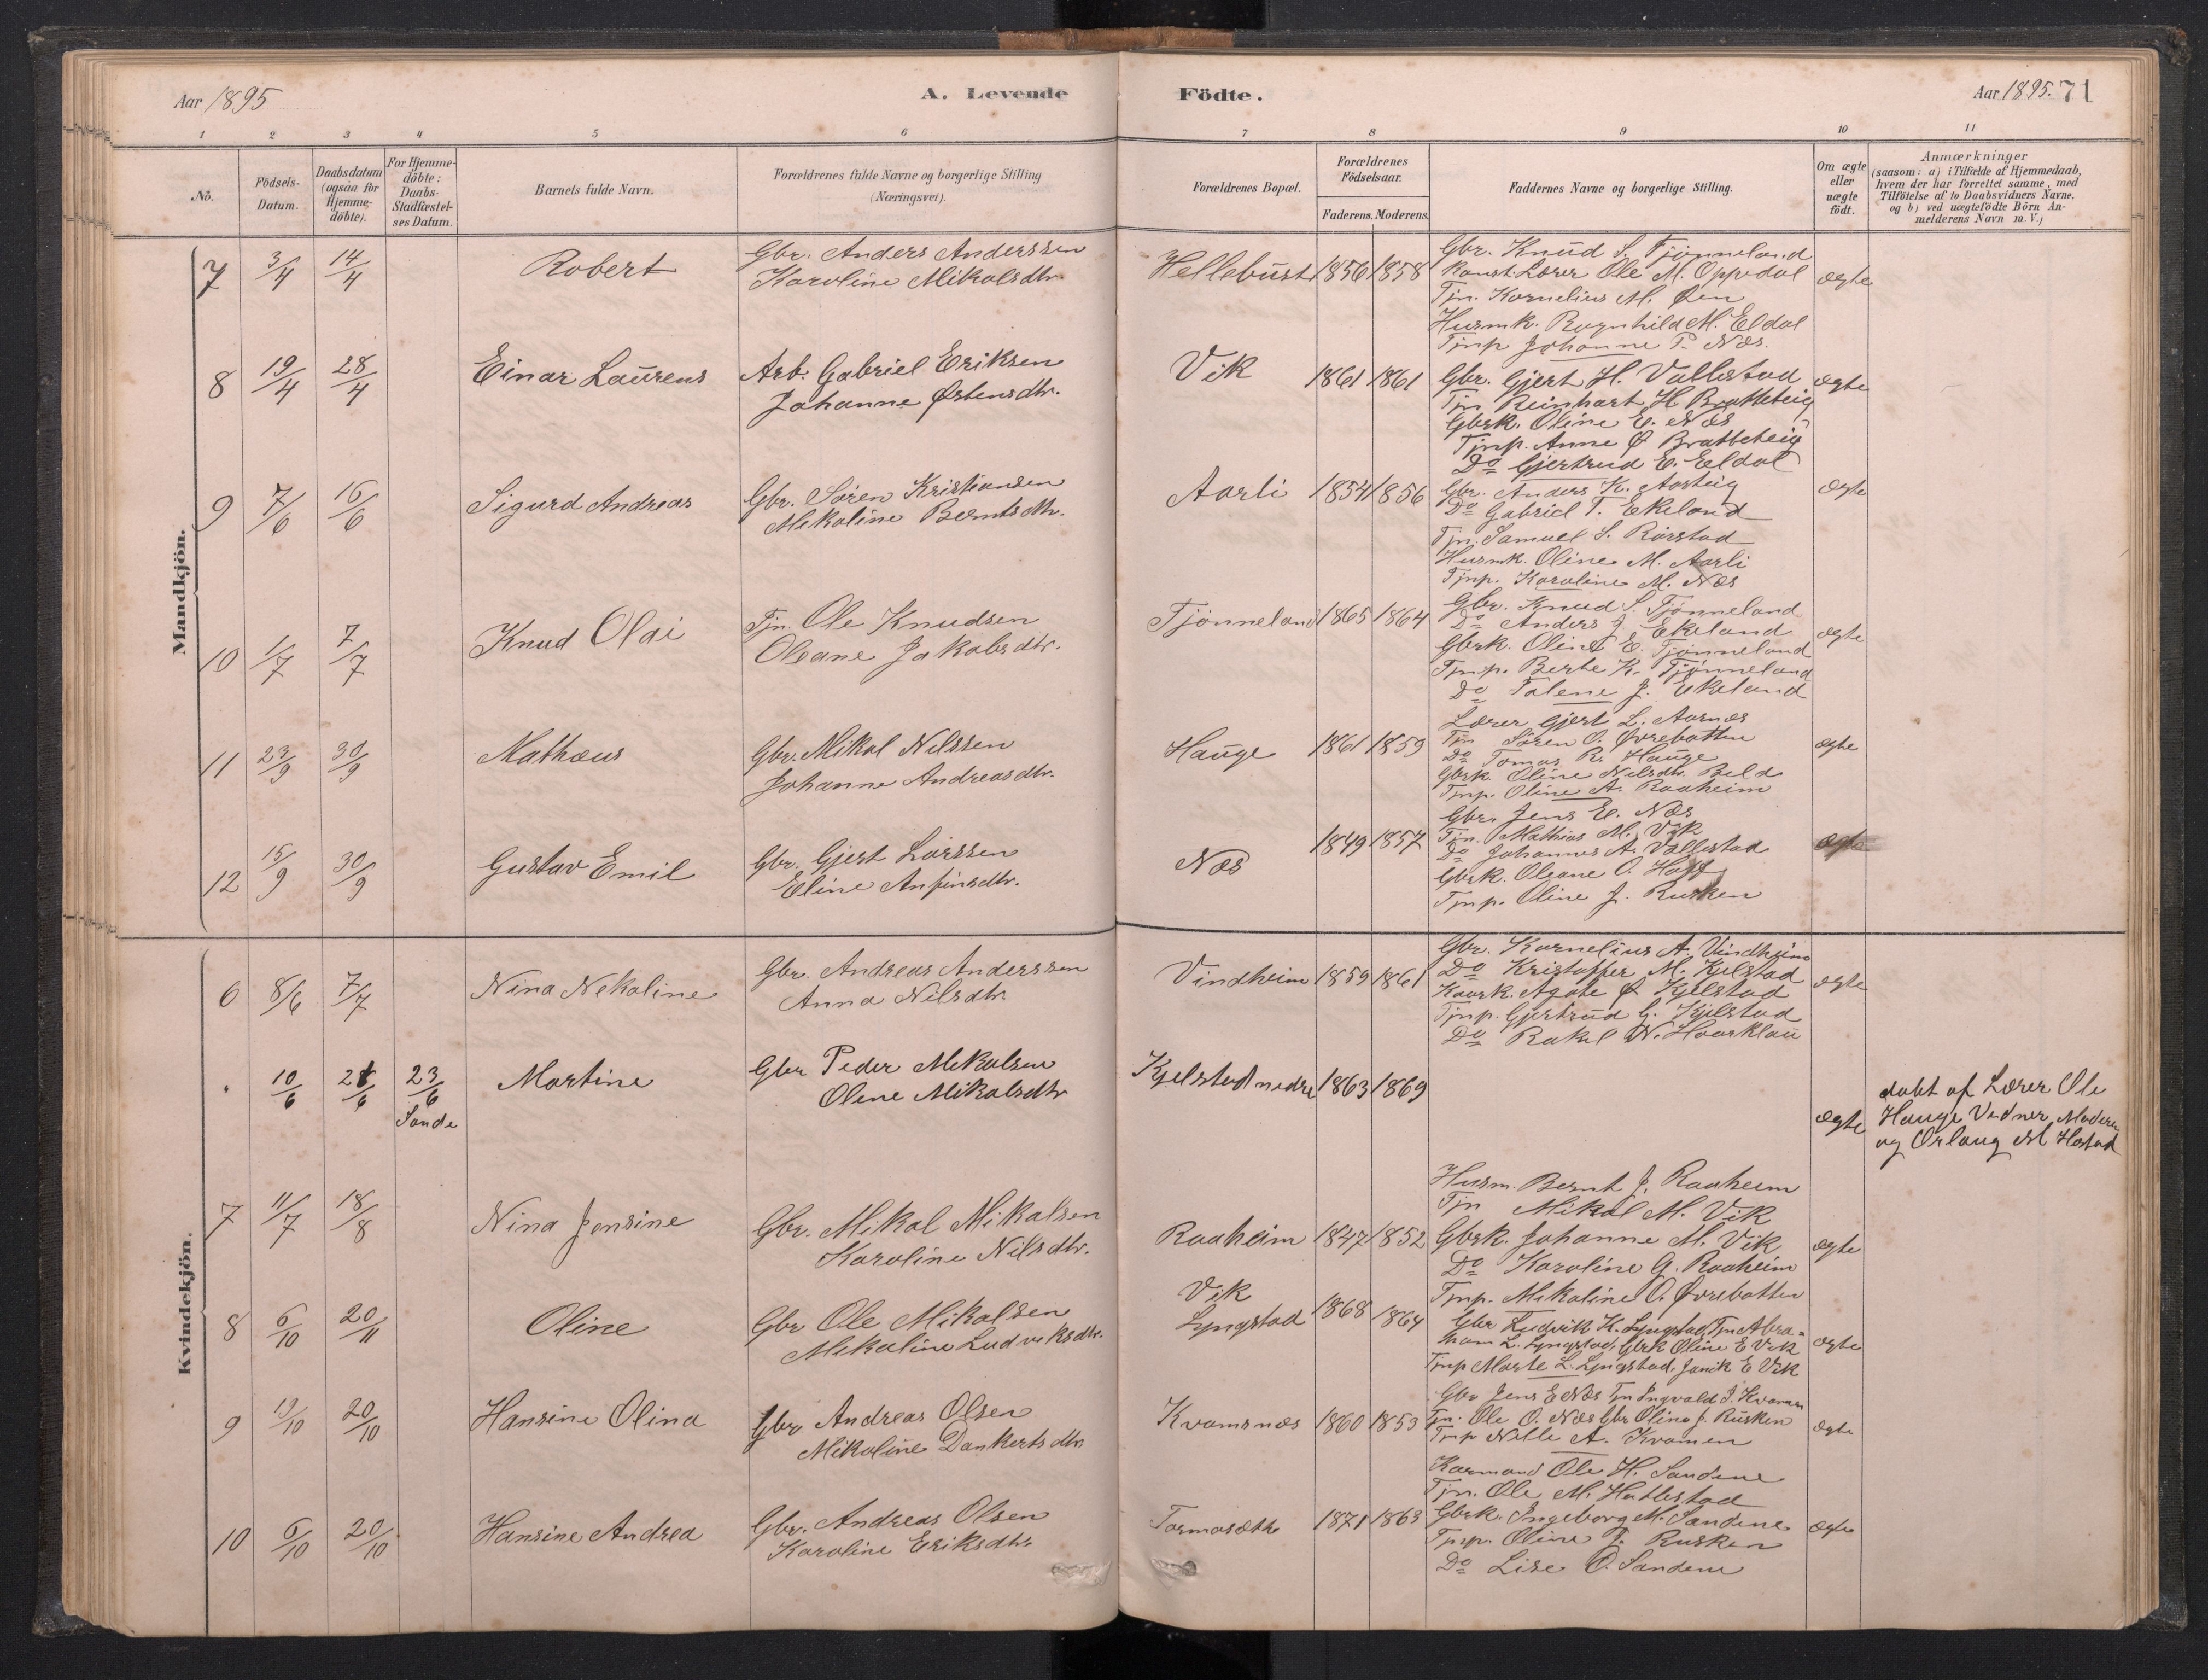 Aar 1895
A. Levende Födte.
Aar 1895. 71
1 2 3 4 5 6 7 8 9 10 11
No.
Födsels-Datum.
Daabsdatum (ogsaa for Hjemme-döbte).
For Hjemme-döbte: Daabs-Stadfæstel-ses Datum.
Barnets fulde Navn.
Forældrenes fulde Navne og borgerlige Stilling (Næringsvei).
Forældrenes Bopæl.
Forældrenes Födselsaar.
Faderens. Moderens.
Faddernes Navne og borgerlige Stilling.
Om ægte eller uægte födt.
Anmærkninger (saasom: a) i Tilfælde af Hjemmedaab, hvem der har forrettet samme, med Tilföielse af to Daabsvidners Navne. og b) ved uægtefödte Börn An-melderens Navn m. V.)
Mandkjön.
7 3/4 14/4 Robert
Gbr. Anders Anderssen
Karoline Mikalsdtr.
Hellebust 1856 1858
Gbr. Knud S. Tjønneland
Konst. Lærer Ole M. Oppedal
Tjn. Kornelius M. Øen
Husmk. Ragnhild M. Eldal
Tjnp Johanne P. Næs.
ægte
8 19/4 28/4 Einar Laurens
Arb. Gabriel Eriksen
Johanne Østensdtr.
Vik 1861 1861
Gbr. Gjert H. Vallestad
Tjn Reinhart H Bratteteig
Gbrk. Oline E. Næs
Tjnp. Anne Ø Bratteteig
Do Gjertrud E. Eldal
ægte
9 7/6 16/6 Sigurd Andreas
Gbr. Søren Kristiansen
Mikaline Berntsdtr.
Aarli 1854 1856
Gbr. Anders K. Aasteig
Do Gabriel T. Ekeland
Tjn. Samuel S. Rørstad
Husmk. Oline M. Aarli
Tjnp. Karoline M. Næs
ægte
10 1/7 7/7 Knud Olai
Tjn. Ole Knudsen
Oleane Jakobsdtr.
Tjønneland 1865 1864
Gbr. Knud S. Tjønneland
Do Anders J. Ekeland
Gbrk. Oline E. Tjønneland
Tjnp. Berte K. Tjønneland
Do Talene J. Ekeland
ægte
11 23/9 30/9 Mathæus
Gbr. Mikal Nilssen
Johanne Andreasdtr.
Hauge 1861 1859
Lærer Gjert L. Aarnæs
Tjn Søren O. Øvrebotten
Do Tomas R. Hauge
Gbrk Oline Nilsdtr. Beld
Tjnp. Oline A. Raaheim
ægte
12 15/9 30/9 Gustav Emil
Gbr. Gjert Larssen
Eline Anfinsdtr.
Næs 1849 1857
Gbr. Jens E. Næs
Tjn. Mathias M. Vik
Do Johannes A. Vallestad
Gbrk. Oleane O. Hoff
Tjnp. Oline J. Rusken
ægte
Kvindekjön.
6 8/6 7/7 Nina Nekoline
Gbr. Andreas Anderssen
Anna Nilsdtr
Vindheim 1859 1861
Gbr. Kornelius A. Vindheim
Do Kristoffer M. Kjelstad
Kaark. Agate Ø Kjelstad
Tjnp. Gjertrud G. Kjelstad
Do Rakel N. Haarklau
ægte
10/6 23/6 Sande Martine
Gbr Peder Mikalsen
Olene Mikalsdtr
Kjelstad nedre 1863 1869
ægte
døbt af Lærer Ole
Hauge Vidner Moderen
og Ørlaug M Hestad
7 11/7 18/8 Nina Jensine
Gbr. Mikal Mikalsen
Karoline Nilsdtr.
Raaheim 1847 1852
Husm. Bernt J. Raaheim
Tjn Mikal M. Vik
Gbrk. Johanne M. Vik
Do Karoline G. Raaheim
Tjnp. Mikaline O. Øvrebotten
ægte
8 6/10 20/11 Oline
Gbr Ole Mikalsen
Mikaline Ludviksdtr.
Vik
Lyngstad 1868 1864
Gbr Ludvik K. Lyngstad, Tjn Abra-
ham L. Lyngstad, Gbrk Oline E Vik
Tjnp Marte L. Lyngstad, Janik E Vik
ægte
9 19/10 20/10 Hansine Olina
Gbr Andreas Olsen
Mikaline Dankertsdtr
Kvamsnæs 1860 1853
Gbr Jens E Næs Tjn Ingvald J. Kvamen
Tjn. Ole O. Næs Gbr Olina J. Rusken
Tjnp Nille A. Kvamen
ægte
10 6/10 20/10 Hansine Andrea
Gbr. Andreas Olsen
Karoline Eriksdtr
Tormosæth 1871 1863
Karmand Ole H. Sandene
Tjn. Ole M. Hatlestad
Gbrk. Ingeborg M. Sandene
Tjnp. Oline J. Rusken
Do Lise O. Sandene
ægte